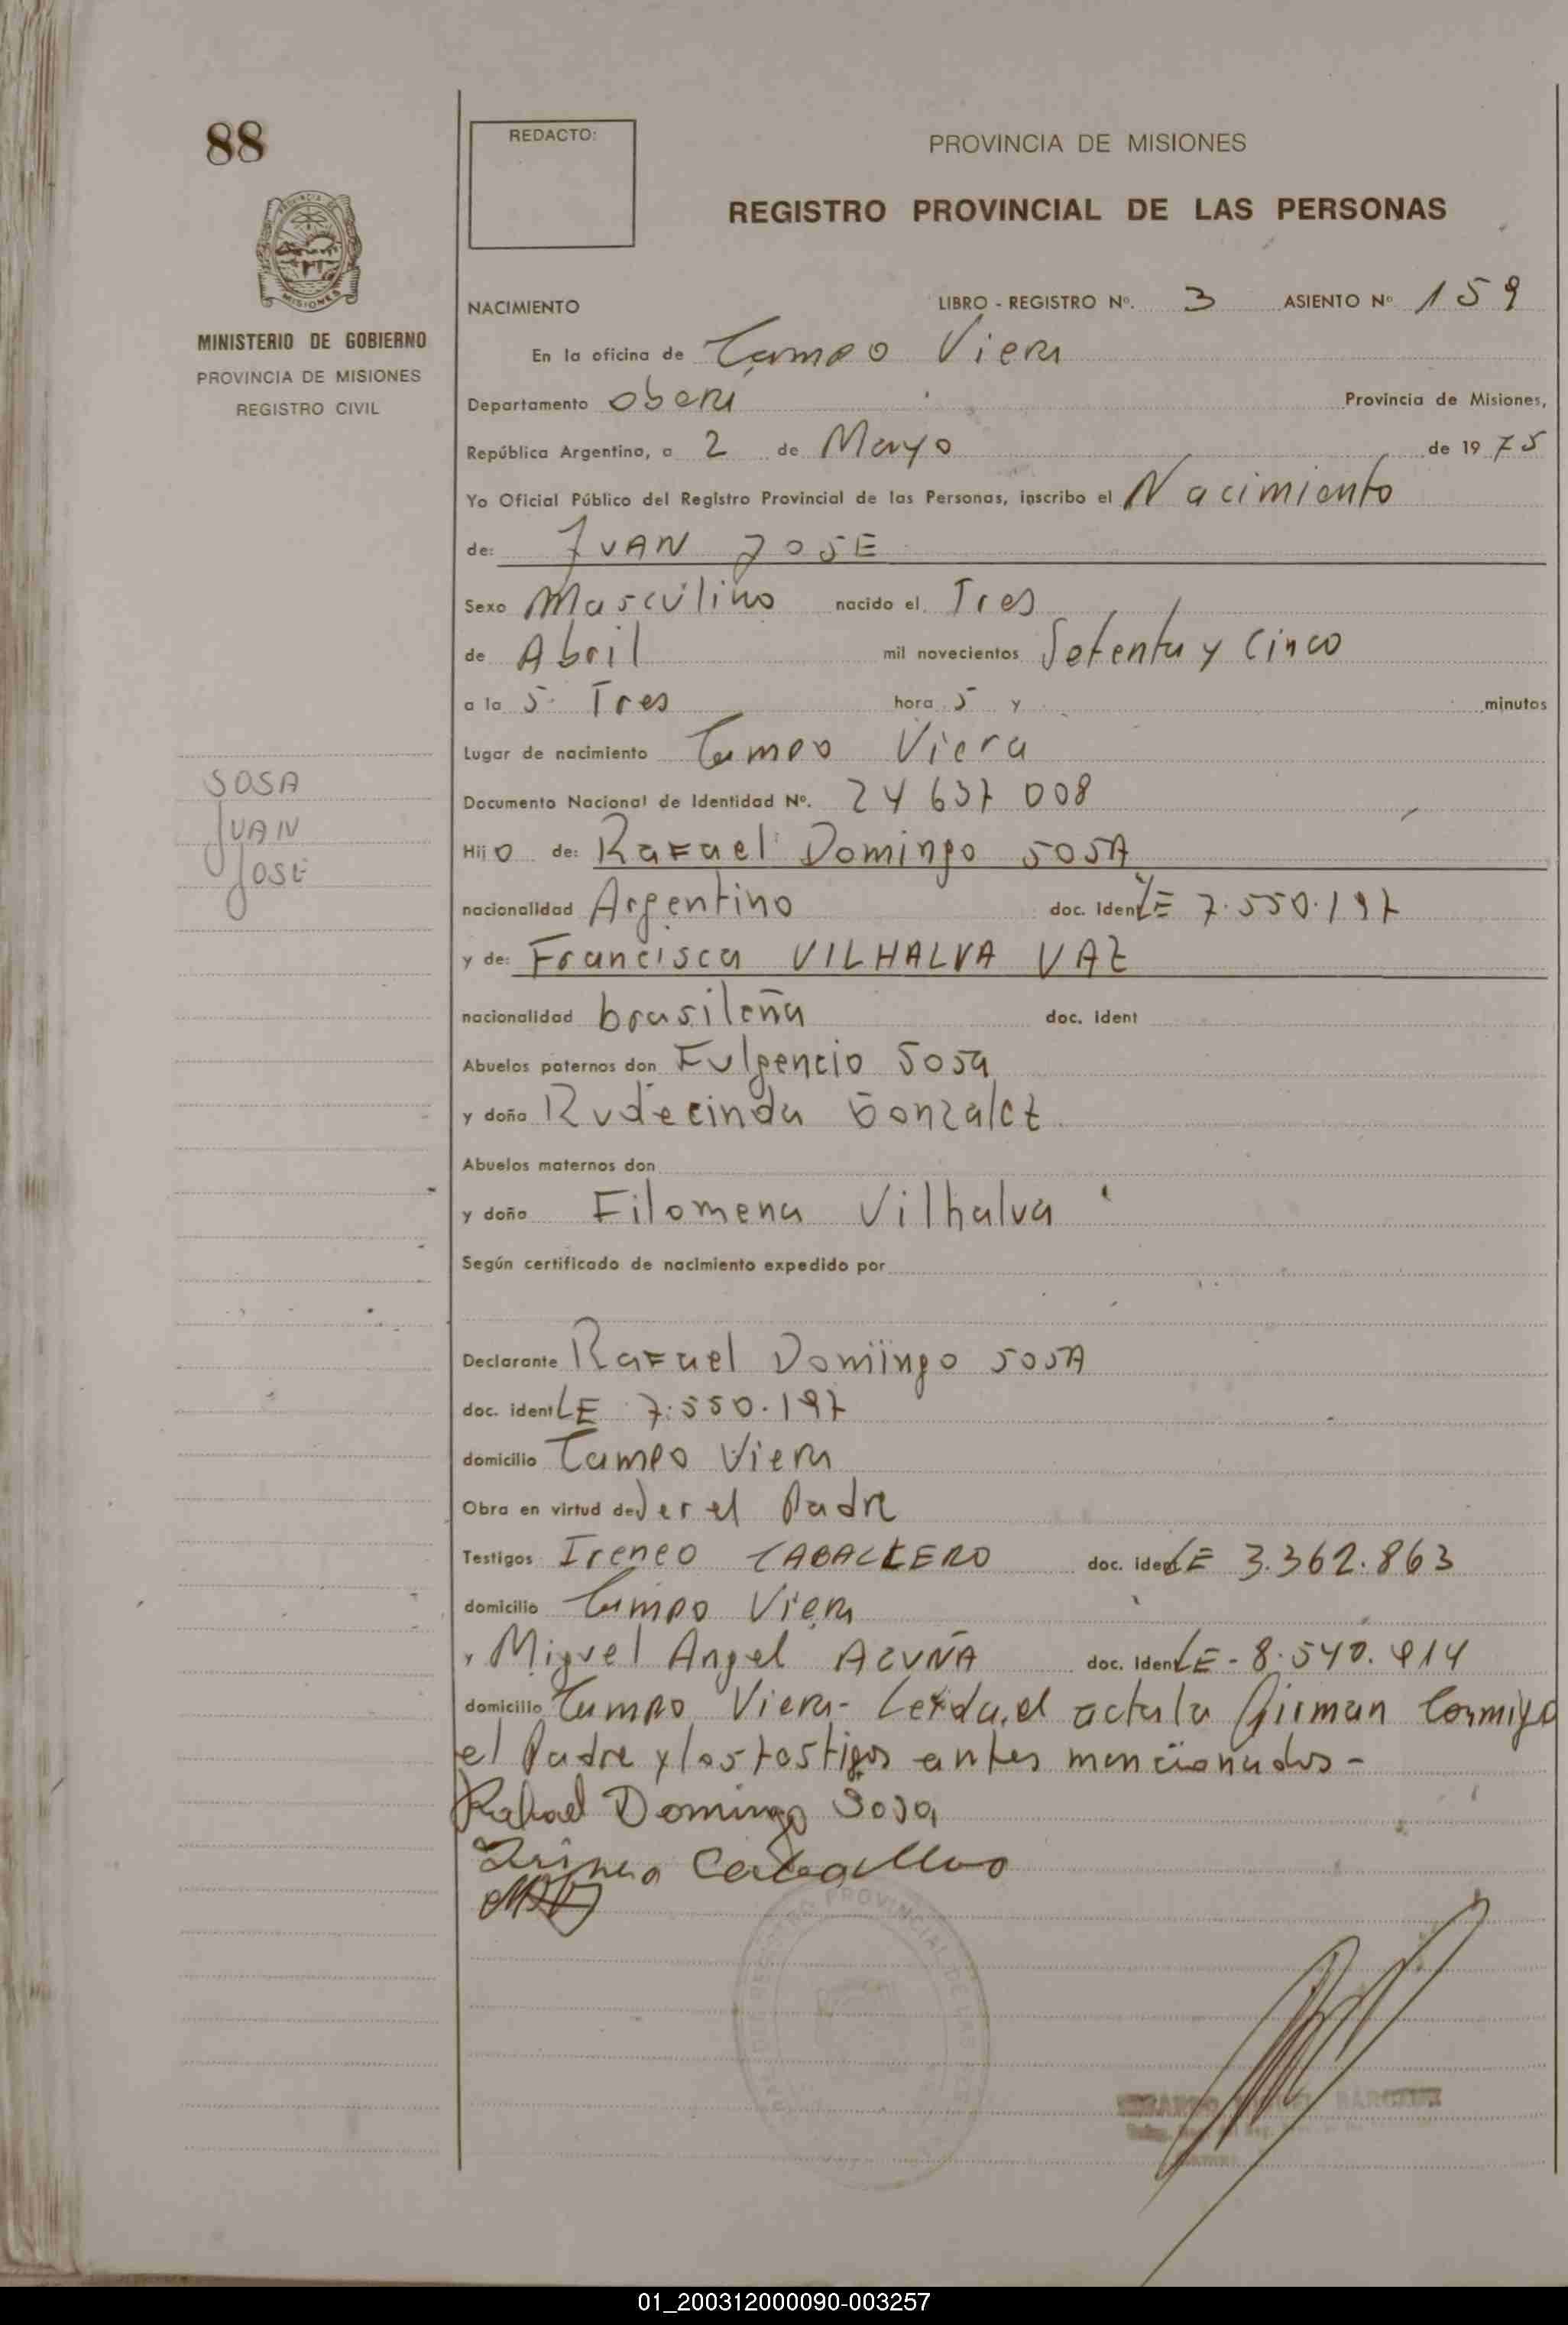 88
REDACTO:
PROVINCIA DE MISIONES
REGISTRO PROVINCIAL DE LAS PERSONAS
MINISTERIO DE GOBIERNO
PROVINCIA DE MISIONES
REGISTRO CIVIL
NACIMIENTO LIBRO - REGISTRO Nº. 3 ASIENTO Nº 159
En la oficina de Campo Viera
Departamento Oberá Provincia de Misiones,
República Argentina, a 2 de Mayo de 1975
Yo Oficial Público del Registro Provincial de las Personas, inscribo el Nacimiento
de: JUAN JOSE
Sexo Masculino nacido el Tres
de Abril mil novecientos Setenta y Cinco
a la s Tres hora s y minutos
Lugar de nacimiento Campo Viera
Documento Nacional de Identidad Nº. 24 637 008
SOSA
JUAN
JOSE
Hijo de: Rafael Domingo SOSA
nacionalidad Argentino doc. Ident LE 7.550.197
y de: Francisca VILHALVA VAZ
nacionalidad brasileña doc. Ident
Abuelos paternos don Fulgencio Sosa
y doña Rudecinda Gonzalez
Abuelos maternos don
y doña Filomena Vilhalva
Según certificado de nacimiento expedido por
Declarante Rafael Domingo SOSA
doc. ident LE 7.550.197
domicilio Campo Viera
Obra en virtud de Ser el Padre
Testigos Ireneo CABALLERO doc. ident LE 3.362.863
domicilio Campo Viera
y Miguel Angel ACUÑA doc. Ident LE - 8.540.914
domicilio Campo Viera - Leída el acta la firman Conmigo
el Padre y los testigos antes mencionados -
Rafael Domingo Sosa
Irineo Caballero
01_200312000090-003257